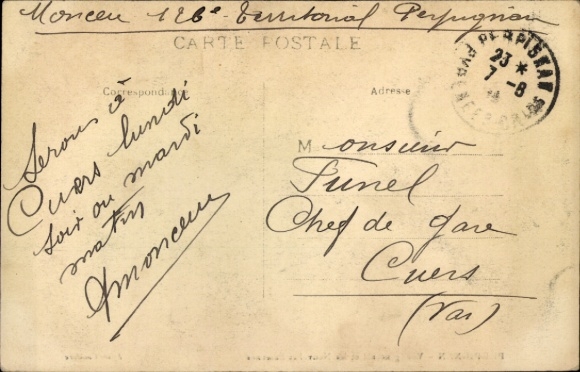 Monceu 126e Territorial Perpignan
CARTE POSTALE
PERPIGNAN
23 *
7 - 8
PYRÉNÉES-ORLES
Correspondance
Adresse
Serons à
Cuers lundi
soir ou mardi
matin
AMonceu
Monsieur
Funel
Chef de Gare
Cuers
(Var)